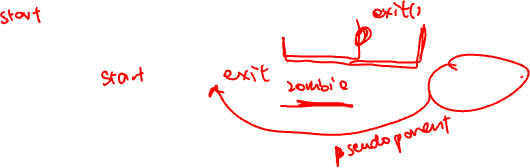 start
exit();
start
exit
zombie
pseudoparent